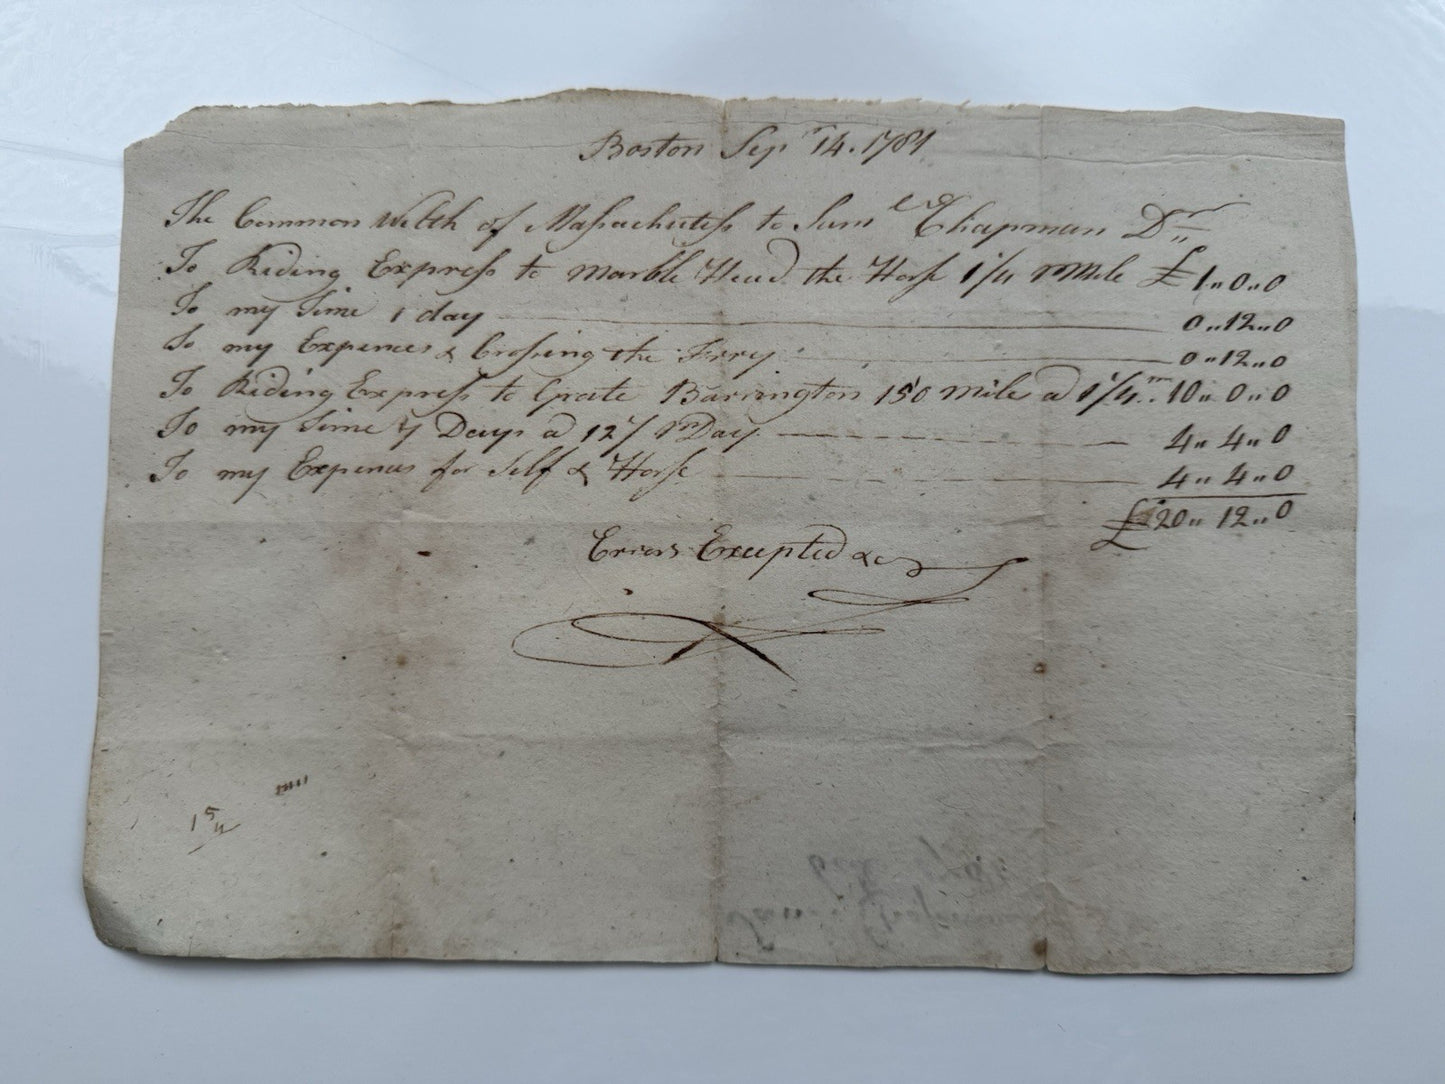 Boston Sepʳ 14. 1784
The Common Welth of Massachutess to Samˡ Chapman Dʳ
To Riding Express to Marble Head the Horse 1/4 pʳ Mile £1„0„0
To my Time 1 day 0„12„0
To my Expences & Crossing the Ferry 0„12„0
To Riding Express to Grate Barrington 150 Mile a 1/4ᵐ 10„0„0
To my Time 7 Days a 12/ pʳ Day 4„4„0
To my Expences for Self & Horse 4„4„0
£20„12„0
Errors Excepted &c